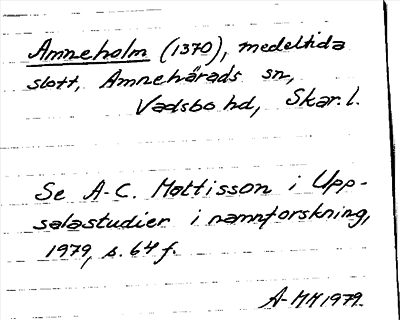 Amneholm (1370), medeltida
slott, Amnehärads sn,
Vadsbo hd, Skar. l.
Se A-C. Mattisson i Upp-
salastudier i namnforskning,
1979, s. 64 f.
A-MM 1979.